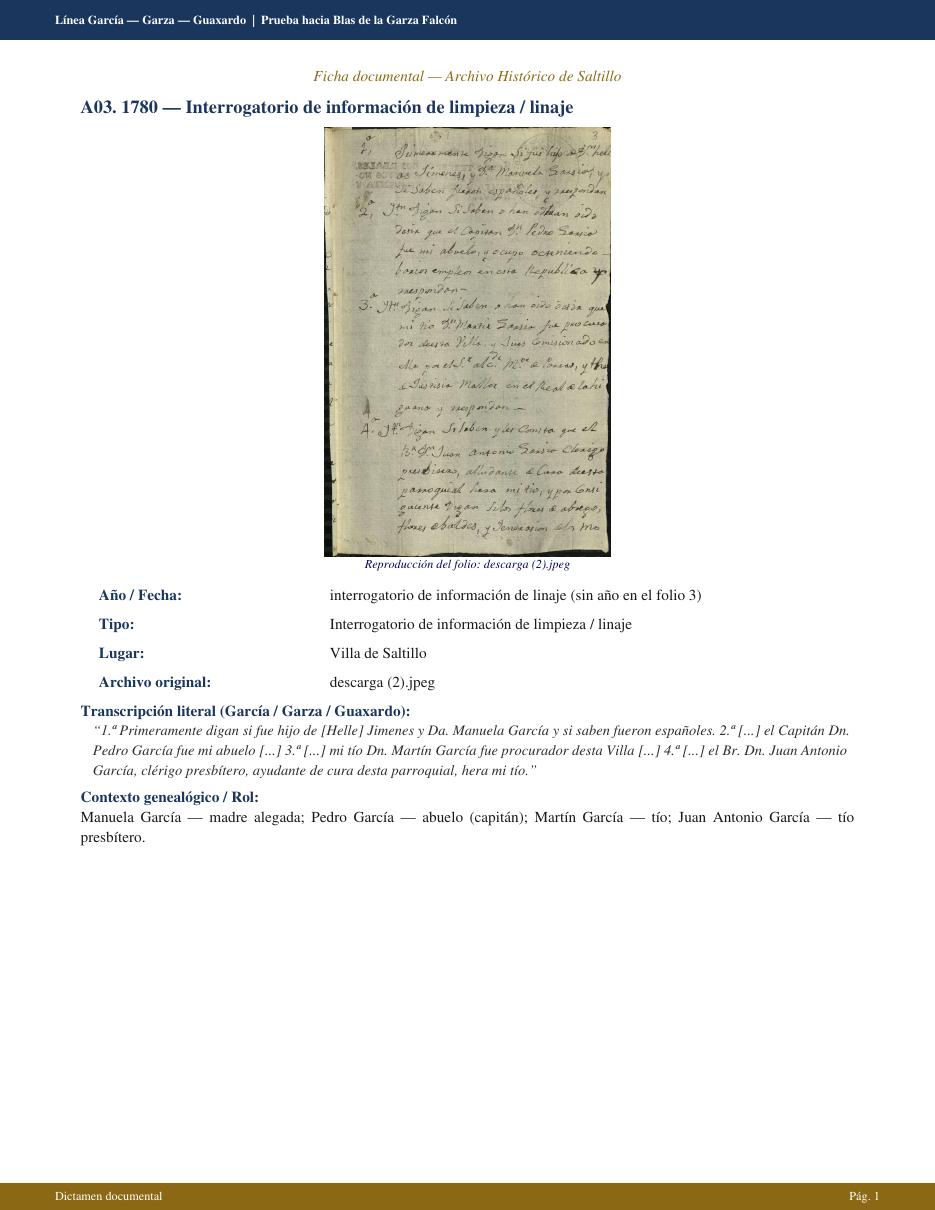 Línea García — Garza — Guaxardo | Prueba hacia Blas de la Garza Falcón
Ficha documental — Archivo Histórico de Saltillo
A03. 1780 — Interrogatorio de información de limpieza / linaje
3
1ª Primeramente digan si fue hijo de Dn
as Jimenes, y Da Manuela Garsia, y
si saben fueron españoles y respondan
2ª Jtn digan si saben o han oido
desir que el Capitan Dn Pedro Garsia
fue mi abuelo, y ocupo
barios empleos en esta Republica y
respondan—
3ª Jtn digan si saben o han oido desir que
mi tio Dn Martin Garsia fue procura
dor desta Villa, y Jues Comisionado en
ella por el Sr alce Mor de
de Justisia Maior en el Real de
y respondan—
4ª Jtn digan si saben y les consta que el
Br Dn Juan Antonio Garsia Clerigo
presbitero, de Cura desta
parroquial hera mi tio, y por Consi
guiente digan si los flores de abrego,
flores de baldes, y Generasion de los
Reproducción del folio: descarga (2).jpeg
Año / Fecha: interrogatorio de información de linaje (sin año en el folio 3)
Tipo: Interrogatorio de información de limpieza / linaje
Lugar: Villa de Saltillo
Archivo original: descarga (2).jpeg
Transcripción literal (García / Garza / Guaxardo):
“1.ª Primeramente digan si fue hijo de [Helle] Jimenes y Da. Manuela García y si saben fueron españoles. 2.ª [...] el Capitán Dn.
Pedro García fue mi abuelo [...] 3.ª [...] mi tío Dn. Martín García fue procurador desta Villa [...] 4.ª [...] el Br. Dn. Juan Antonio
García, clérigo presbítero, ayudante de cura desta parroquial, hera mi tío.”
Contexto genealógico / Rol:
Manuela García — madre alegada; Pedro García — abuelo (capitán); Martín García — tío; Juan Antonio García — tío
presbítero.
Dictamen documental
Pág. 1